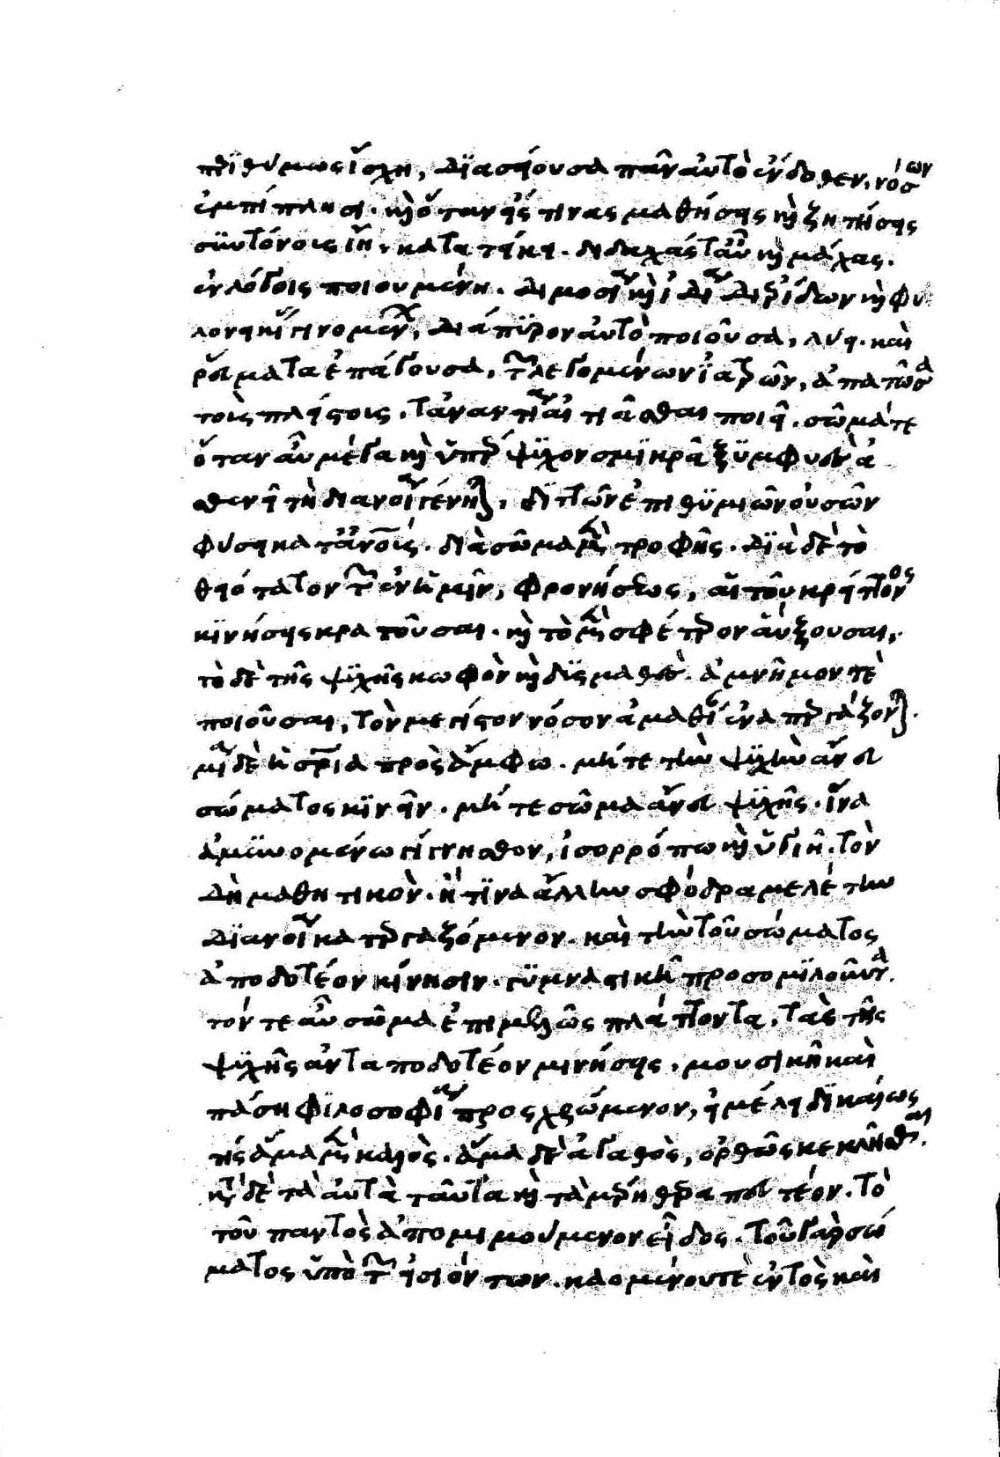 περιθύμως ἴσχη, διασείουσα πᾶν αὐτὸ ἔνδοθεν, νόσων
ἐμπίπλησι. καὶ ὅταν εἴς τινας μαθήσεις καὶ ζητήσεις
συντόνως ἴῃ, κατατήκει. διδαχάς τ' αὖ καὶ μάχας.
ἐν λόγοις ποιουμένη. δημοσίᾳ καὶ ἰδίᾳ δι' ἐρίδων καὶ φι
λονεικίας γινομένων, διάπυρον αὐτὸ ποιοῦσα, λύει. καὶ
ῥεύματα ἐπάγουσα, τῶν λεγομένων ἰατρῶν, ἀπατῶσα
τοὺς πλείστους. τἀναντία αἰτιᾶσθαι ποιεῖ. σῶμά τε
ὅταν αὖ μέγα καὶ ὑπέρψυχον σμικρᾷ ξυμφυὲς ἀ
σθενεῖ τε διανοίᾳ γένηται, διττῶν ἐπιθυμιῶν οὐσῶν
φύσει κατ' ἀνθρώπους. διὰ σῶμα μὲν τροφῆς. διὰ δὲ τὸ
θειότατον τῶν ἐν ἡμῖν, φρονήσεως, αἱ τοῦ κρείττονος
κινήσεις κρατοῦσαι. καὶ τὸ μὲν σφέτερον αὔξουσαι,
τὸ δὲ τῆς ψυχῆς κωφὸν καὶ δυσμαθὲς. ἀμνῆμόν τε
ποιοῦσαι, τὸν μεγίστον νόσον ἀμαθίαν ἐναπεργάζονται.
μία δὲ ἡ σωτηρία πρὸς ἄμφω. μήτε τὴν ψυχὴν ἄνευ
σώματος κινεῖν. μήτε σῶμα ἄνευ ψυχῆς. ἵνα
ἀμυνομένω γίγνησθον, ἰσορρόπω καὶ ὑγιῆ. τὸν
δὴ μαθητικὸν. ἤ τινα ἄλλην σφόδρα μελέτην
διανοίᾳ κατεργαζόμενον. καὶ τὴν τοῦ σώματος
ἀποδοτέον κίνησιν. γυμναστικῆ προσομιλοῦντα.
τόν τε αὖ σῶμα ἐπιμελῶς πλάττοντα, τὰς τῆς
ψυχῆς ἀνταποδοτέον κινήσεις. μουσικῆ καὶ
πάσῃ φιλοσοφίᾳ προσχρώμενον, εἰ μέλλει δικαίως
τις ἅμα μὲν καλὸς. ἅμα δὲ ἀγαθὸς, ὀρθῶς κεκλῆσθαι.
κατὰ δὲ τὰ αὐτὰ ταῦτα καὶ τὰ μέρη θεραπευτέον. τὸ
τοῦ παντὸς ἀπομιμούμενον εἶδος. τοῦ γὰρ σώ
ματος ὑπὸ τῶν εἰσιόντων. καομένου τε ἐντὸς καὶ